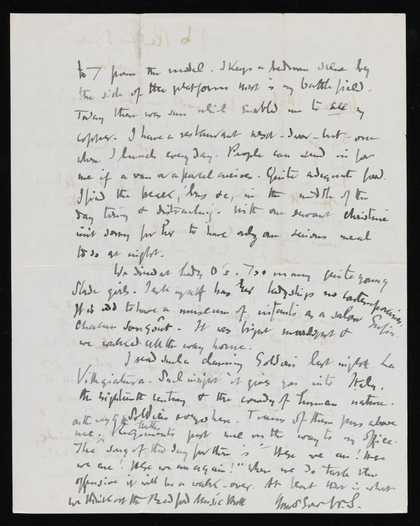 to 7 from the model. I keep a bedroom slice by
the side of the platform that is my battlefield.
Today there was sun which enabled me to see my
copper. I have a restaurant next-door-but-one
where I lunch every day. People can send in for
me if a van or a parcel arrives. Quite adequate food.
I find the break, bus &c, in the middle of the
day tiring & distracting. With one servant Christine
isnt sorry for her to have only one serious meal
to do at night.
We dined at Lady O's. Too many quite young
Slade girls. Lady has her ladyships no contemporaries,
It is odd to have a museum of infants as a salon
chacun son goût. It was bright moonlight &
we walked all the way home.
I read such a charming Goldoni last night La
Villegiatura. Such insight it gives you into Italy,
the eighteenth century & the comedy of human nature.
Soldiers everywhere. Trains of them pass above
me, Regiments pass me on the way to my office.
The song of this day for them is "Here we are! Here
we are! Here we are again!" When we do take the
offensive it will be a walk-over. At least that is what
we think at the Bedford Music Hall